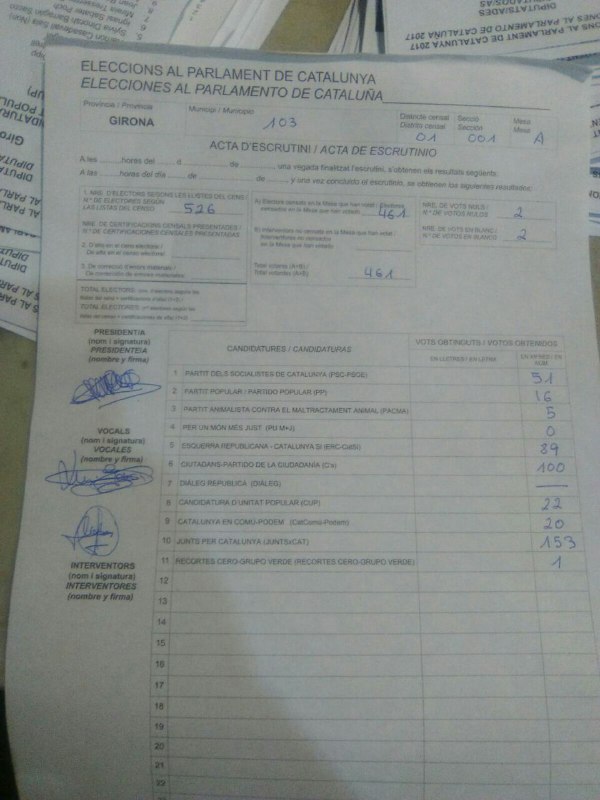 ELECCIONS AL PARLAMENT DE CATALUNYA
ELECCIONES AL PARLAMENTO DE CATALUÑA
Província / Provincia
GIRONA
Municipi / Municipio
103
Districte censal
Distrito censal
01
Secció
Sección
001
Mesa
Mesa
A
ACTA D'ESCRUTINI / ACTA DE ESCRUTINIO
A les ......horas del ..... d ......... de ........., una vegada finalitzat l'escrutini, s'obtenen els resultats següents:
A las ......horas del día ..... de ......... de ......... y una vez concluido el escrutinio, se obtienen los siguientes resultados:
1. NRE. D'ELECTORS SEGONS LES LLISTES DEL CENS /
N.º DE ELECTORES SEGÚN
LAS LISTAS DEL CENSO
526
NRE. DE CERTIFICACIONS CENSALS PRESENTADES /
N.º DE CERTIFICACIONES CENSALES PRESENTADAS
2. D'alta en el cens electoral /
De alta en el censo electoral
3. De correcció d'errors materials /
De corrección de errores materiales
TOTAL ELECTORS:
TOTAL ELECTORES:
A) Electors censats en la Mesa que han votat / Electores
censados en la Mesa que han votado
461
B) Interventors no censats en la Mesa que han votat /
Interventores no censados
en la Mesa que han votado
Total votants (A+B) /
Total votantes (A+B)
461
NRE. DE VOTS NULS /
N.º DE VOTOS NULOS
2
NRE. DE VOTS EN BLANC /
N.º DE VOTOS EN BLANCO
2
PRESIDENT/A
(nom i signatura)
PRESIDENTE/A
(nombre y firma)
VOCALS
(nom i signatura)
VOCALES
(nombre y firma)
INTERVENTORS
(nom i signatura)
INTERVENTORES
(nombre y firma)
CANDIDATURES / CANDIDATURAS
VOTS OBTINGUTS / VOTOS OBTENIDOS
EN LLETRES / EN LETRA
EN XIFRES / EN NÚM.
1 PARTIT DELS SOCIALISTES DE CATALUNYA (PSC-PSOE) 51
2 PARTIT POPULAR / PARTIDO POPULAR (PP) 16
3 PARTIT ANIMALISTA CONTRA EL MALTRACTAMENT ANIMAL (PACMA) 5
4 PER UN MÓN MÉS JUST (PU M+J) 0
5 ESQUERRA REPUBLICANA - CATALUNYA SÍ (ERC-CatSí) 89
6 CIUTADANS-PARTIDO DE LA CIUDADANÍA (C's) 100
7 DIÀLEG REPUBLICÀ (DIÀLEG) —
8 CANDIDATURA D'UNITAT POPULAR (CUP) 22
9 CATALUNYA EN COMÚ-PODEM (CatComú-Podem) 20
10 JUNTS PER CATALUNYA (JUNTSxCAT) 153
11 RECORTES CERO-GRUPO VERDE (RECORTES CERO-GRUPO VERDE) 1
12
13
14
15
16
17
18
19
20
21
22